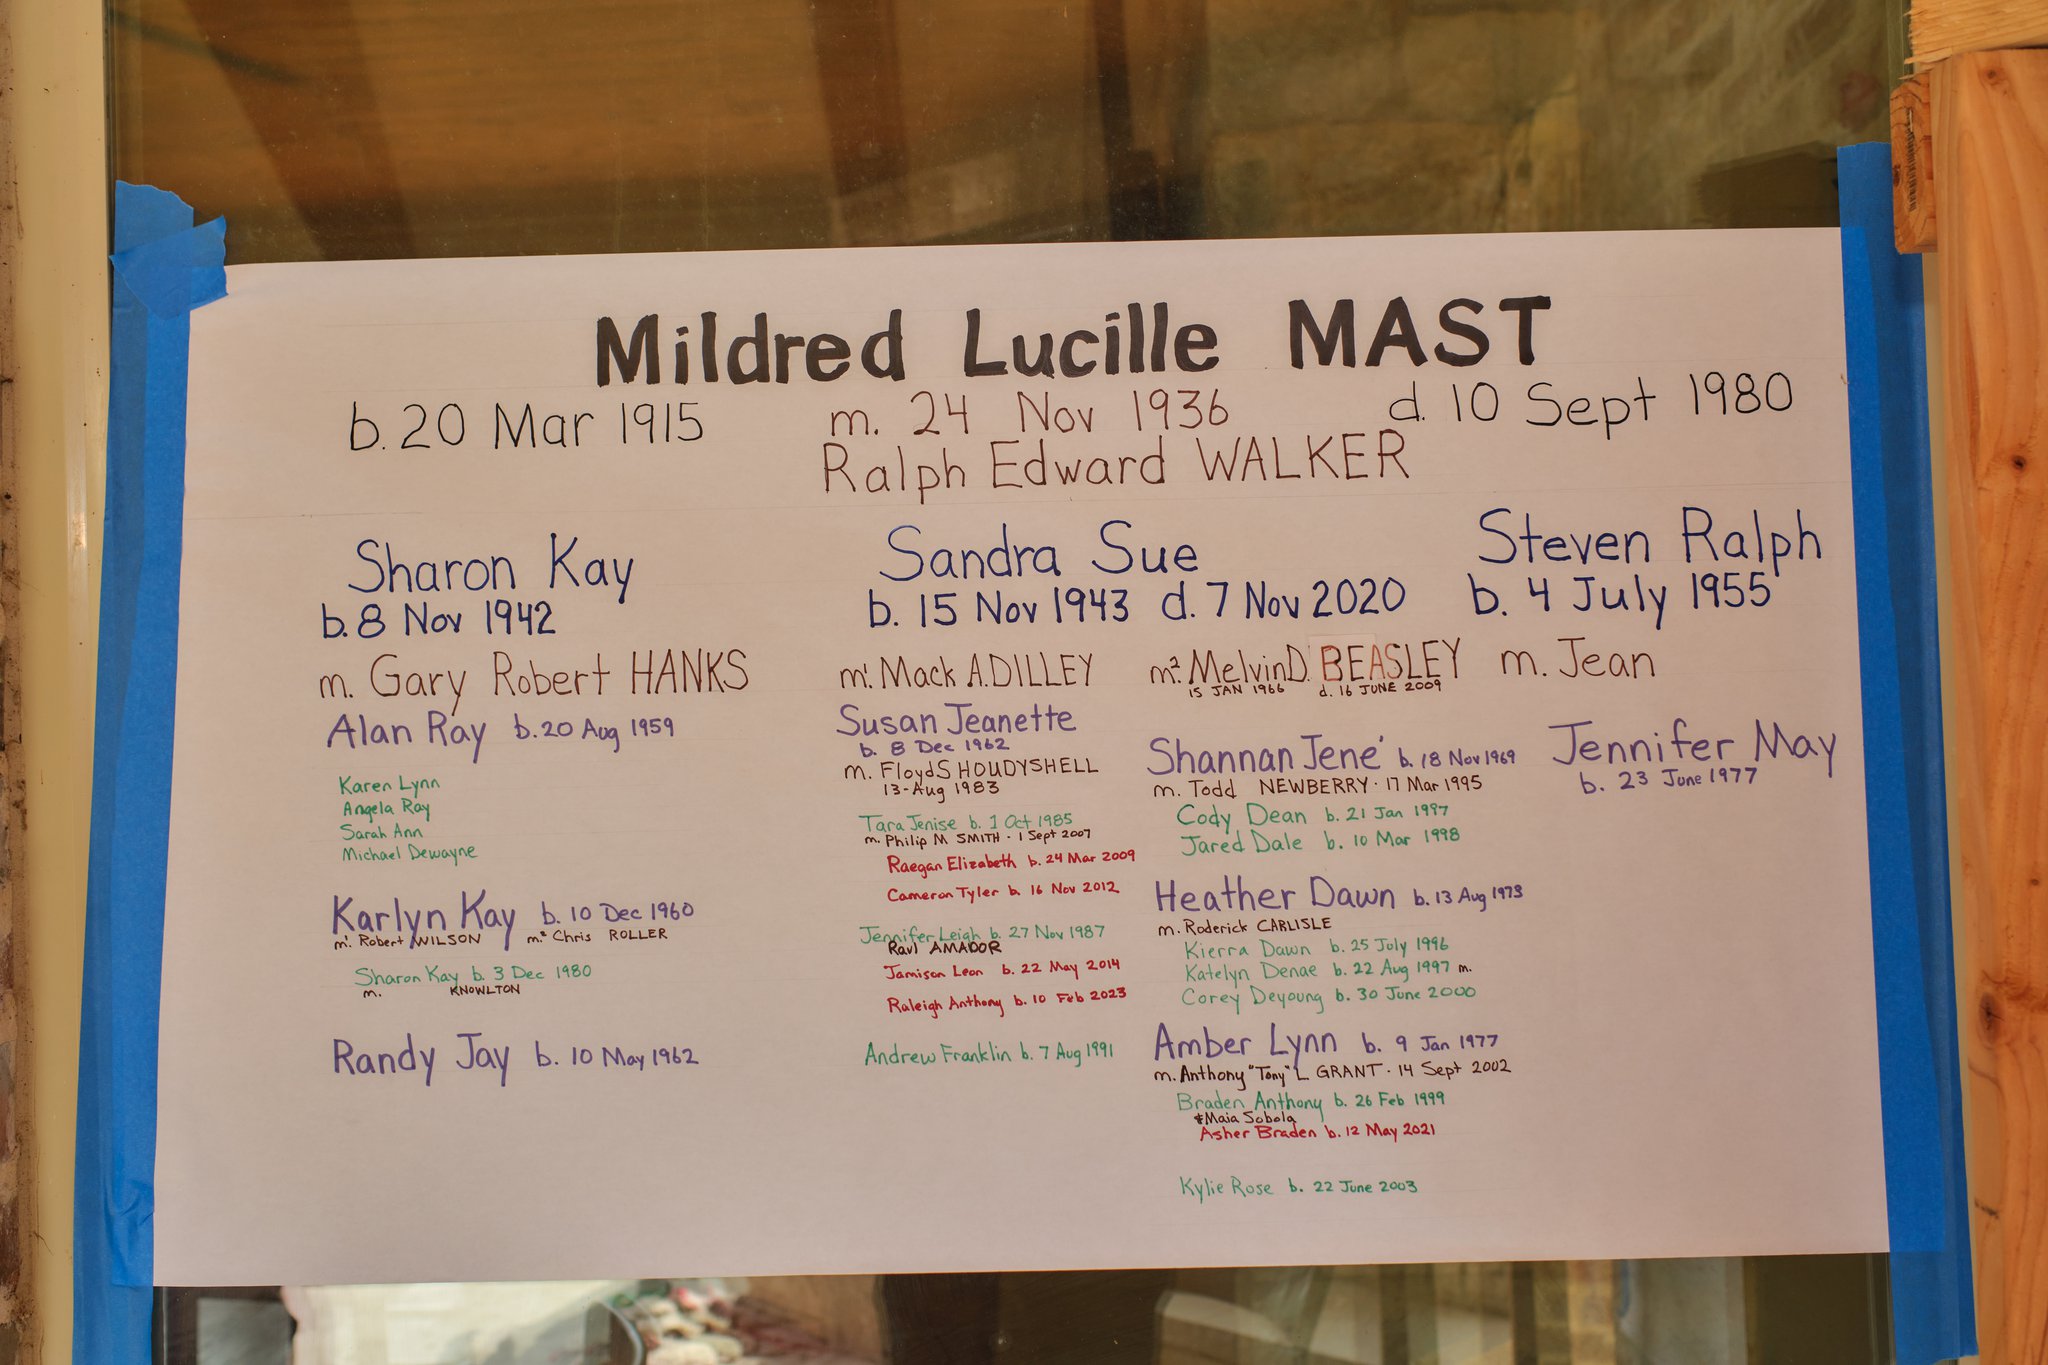 Mildred Lucille MAST
b. 20 Mar 1915 m. 24 Nov 1936 d. 10 Sept 1980
Ralph Edward WALKER
Sharon Kay
b. 8 Nov 1942
m. Gary Robert HANKS
Alan Ray b. 20 Aug 1959
Karen Lynn
Angela Ray
Sarah Ann
Michael Dewayne
Karlyn Kay b. 10 Dec 1960
m¹. Robert WILSON m.² Chris ROLLER
Sharon Kay b. 3 Dec 1980
m. KNOWLTON
Randy Jay b. 10 May 1962
Sandra Sue
b. 15 Nov 1943 d. 7 Nov 2020
m¹. Mack A. DILLEY
Susan Jeanette
b. 8 Dec 1962
m. Floyd S HOUDYSHELL
13-Aug 1983
Tara Jenise b. 1 Oct 1985
m. Philip M SMITH · 1 Sept 2007
Raegan Elizabeth b. 24 Mar 2009
Cameron Tyler b. 16 Nov 2012
Jennifer Leigh b. 27 Nov 1987
Raul AMADOR
Jamison Leon b. 22 May 2014
Raleigh Anthony b. 10 Feb 2023
Andrew Franklin b. 7 Aug 1991
m.² Melvin D. BEASLEY
15 JAN 1966 d. 16 JUNE 2009
Shannan Jené b. 18 Nov 1969
m. Todd NEWBERRY · 17 Mar 1995
Cody Dean b. 21 Jan 1997
Jared Dale b. 10 Mar 1998
Heather Dawn b. 13 Aug 1973
m. Roderick CARLISLE
Kierra Dawn b. 25 July 1996
Katelyn Denae b. 22 Aug 1997 m.
Corey Deyoung b. 30 June 2000
Amber Lynn b. 9 Jan 1977
m. Anthony "Tony" L GRANT · 14 Sept 2002
Braden Anthony b. 26 Feb 1999
+Maia Sobola
Asher Braden b. 12 May 2021
Kylie Rose b. 22 June 2003
Steven Ralph
b. 4 July 1955
m. Jean
Jennifer May
b. 23 June 1977